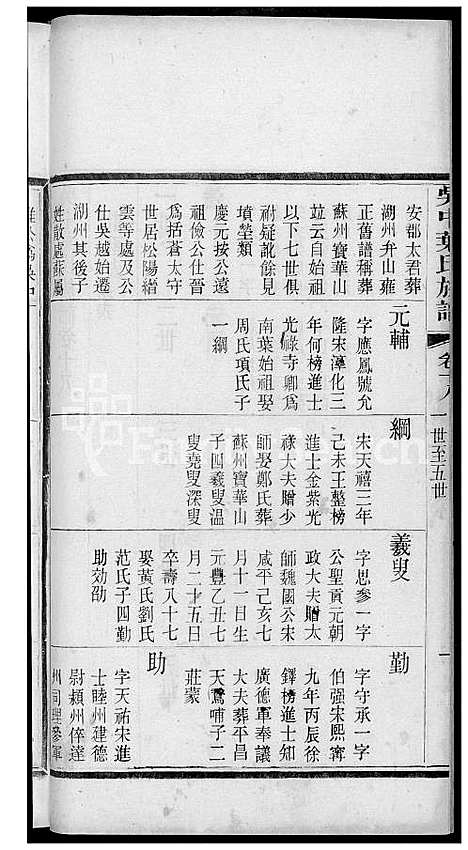 吳中葉氏族譜
卷十八
一世至五世
一
安郡太君葬
湖州弁山雍
正舊譜稱葬
蘇州寶華山
竝云自始祖
以下七世俱
祔疑訛餘見
墳塋類
慶元按公遠
祖儉公仕晉
爲括蒼太守
世居松陽縉
雲等處及公
仕吳越始遷
湖州其後子
姓散處蘇屬
元輔
字應鳳號允
隆宋淳化三
年何榜進士
光祿寺卿爲
南葉始祖娶
周氏項氏子
一綱
綱
宋天禧三年
己未王整榜
進士金紫光
祿大夫贈少
師娶鄭氏葬
蘇州寶華山
子四羲叟溫
叟堯叟深叟
羲叟
字思參一字
公聖貢元朝
政大夫贈太
師魏國公宋
咸平己亥七
月十一日生
元豐乙丑七
月二十五日
卒壽八十七
娶黃氏劉氏
范氏子四勤
助効劭
勤
字守承一字
伯强宋熙寧
九年丙辰徐
鐸榜進士知
廣德軍奉議
大夫葬平昌
天鵞哺子二
莊蒙
助
字天祐宋進
士睦州建德
尉潁州倅達
州司理參軍